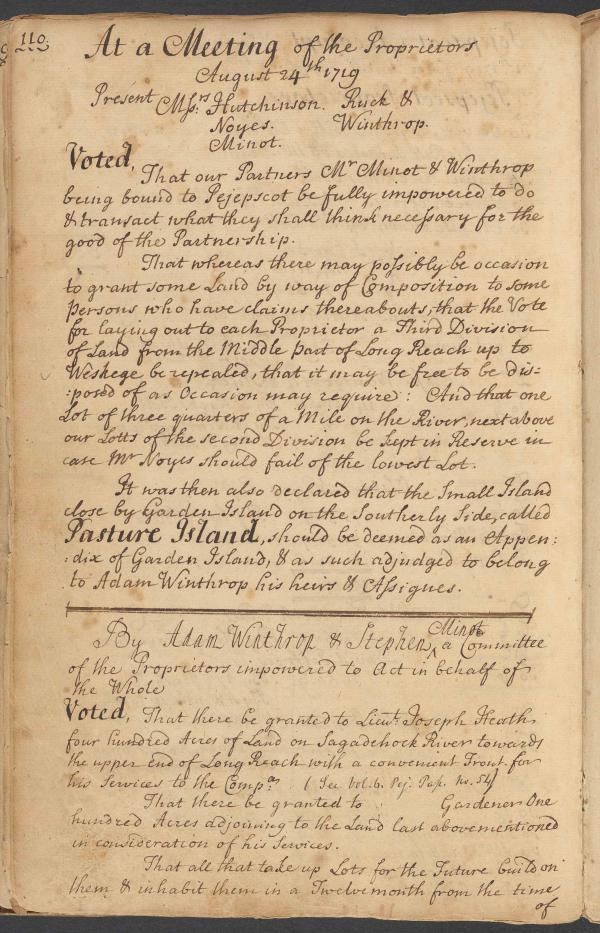 110.
At a Meeting of the Proprietors
August 24th 1719
Present Messrs: Hutchinson. Ruck &
Noyes. Winthrop.
Minot.
Voted, That our Partners Mr Minot & Winthrop
being bound to Pejepscot be fully impowered to do
& transact what they shall think necessary for the
good of the Partnership.
That whereas there may possibly be occasion
to grant some Land by way of Composition to some
Persons who have claims thereabouts, that the Vote
for laying out to each Proprietor a Third Division
of Land from the Middle part of Long Reach up to
Weskege be repealed, that it may be free to be dis=
:posed of as Occasion may require: And that one
Lot of three quarters of a Mile on the River, next above
our Lotts of the second Division be kept in Reserve in
case Mr Noyes should fail of the lowest Lot.
It was then also declared that the Small Island
close by Garden Island on the Southerly Side, called
Pasture Island, should be deemed as an Appen:
:dix of Garden Island, & as such adjudged to belong
to Adam Winthrop his heirs & Assignes.
By Adam Winthrop & Stephen Minot ^ a Committee
of the Proprietors impowered to Act in behalf of
the Whole
Voted, That there be granted to Lieut: Joseph Heath
four hundred Acres of Land on Sagadehock River towards
the upper End of Long Reach with a convenient Front for
his Services to the Compa. (See Vol. 6. Pej. Pap. No. 54)
That there be granted to Gardener One
hundred Acres adjoining to the Land last abovementioned
in consideration of his Services.
That all that take up Lots for the Future build on
them & inhabit them in a Twelvemonth from the time
of